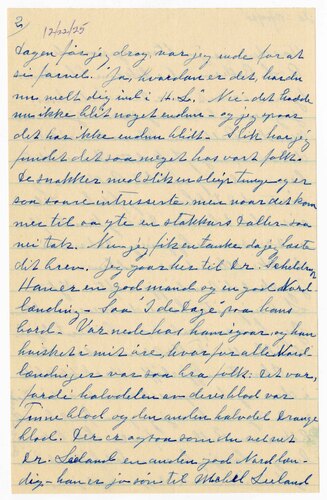 2
12/22/25
dagen før jeg drog, var jeg ude for at
si farvel. "Ja, hvordan er det, har du
nu meldt dig ind i H.L." Nei - det hadde
nu ikke blit noget endnu - og jeg svarer
det har ikke endnu blitt. Slik har jeg
fundet det saa meget hos vort folk.
De snakker med slik en sleip tunge og er
saa svare interesserte, men naar det kom
mer til at yte en stakkars daller - saa
nei tak. Nu - jeg fik en tanke da jeg læste
dit brev. Jeg gaar her til Dr.
Han er en god mand og en god Nord
lænding. - Saa "I de Dage" paa hans
bord. - Var nede hos ham igaar, og han
hvisket i mit øre, hvorfor alle Nord
lændinger var saa bra folk: Det var,
fordi halvdelen av deres blod var
Finne blod og den anden halvdel Drauge
blod. Der er ogsaa som du vet vet
Dr. Seeland en anden god Nordlæn
ding - han er jo søn til Seeland